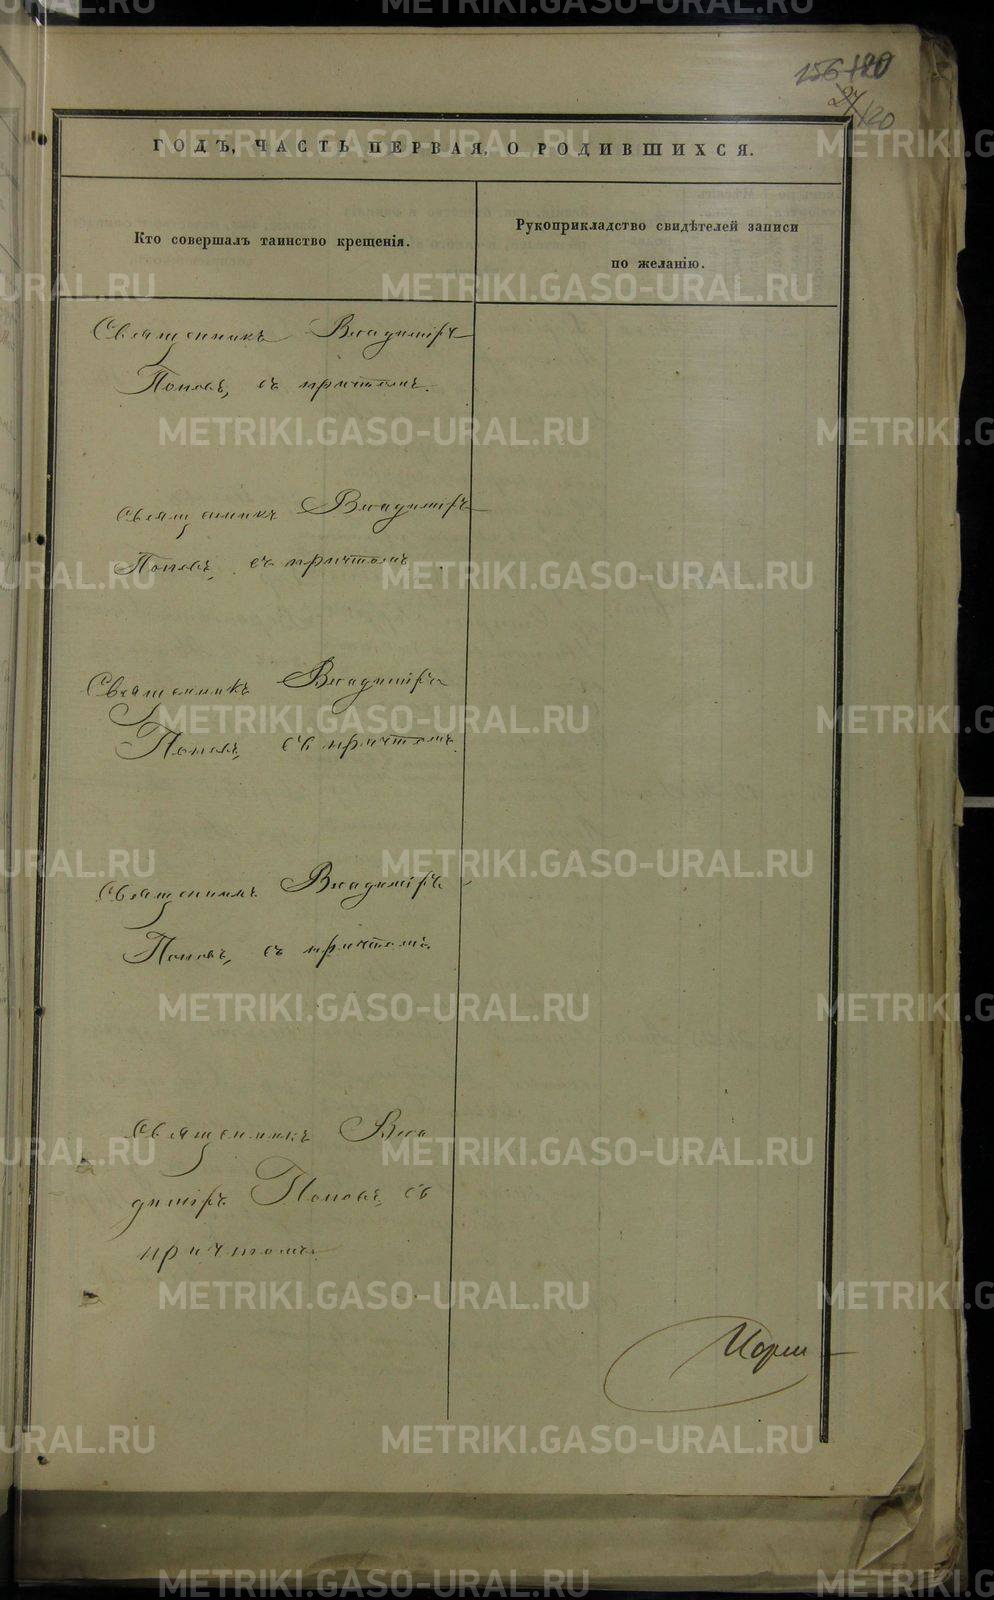 156
120
27/20
ГОДЪ, ЧАСТЬ ПЕРВАЯ, О РОДИВШИХСЯ.
Кто совершалъ таинство крещенія.
Рукоприкладство свидѣтелей записи
по желанію.
Священникъ Владиміръ
Поповъ, съ причтомъ.
Священникъ Владиміръ
Поповъ, съ причтомъ.
Священникъ Владиміръ
Поповъ, съ причтомъ.
Священникъ Владиміръ
Поповъ, съ причтомъ.
Священникъ Вла
диміръ Поповъ, съ
причтомъ.
METRIKI.GASO-URAL.RU